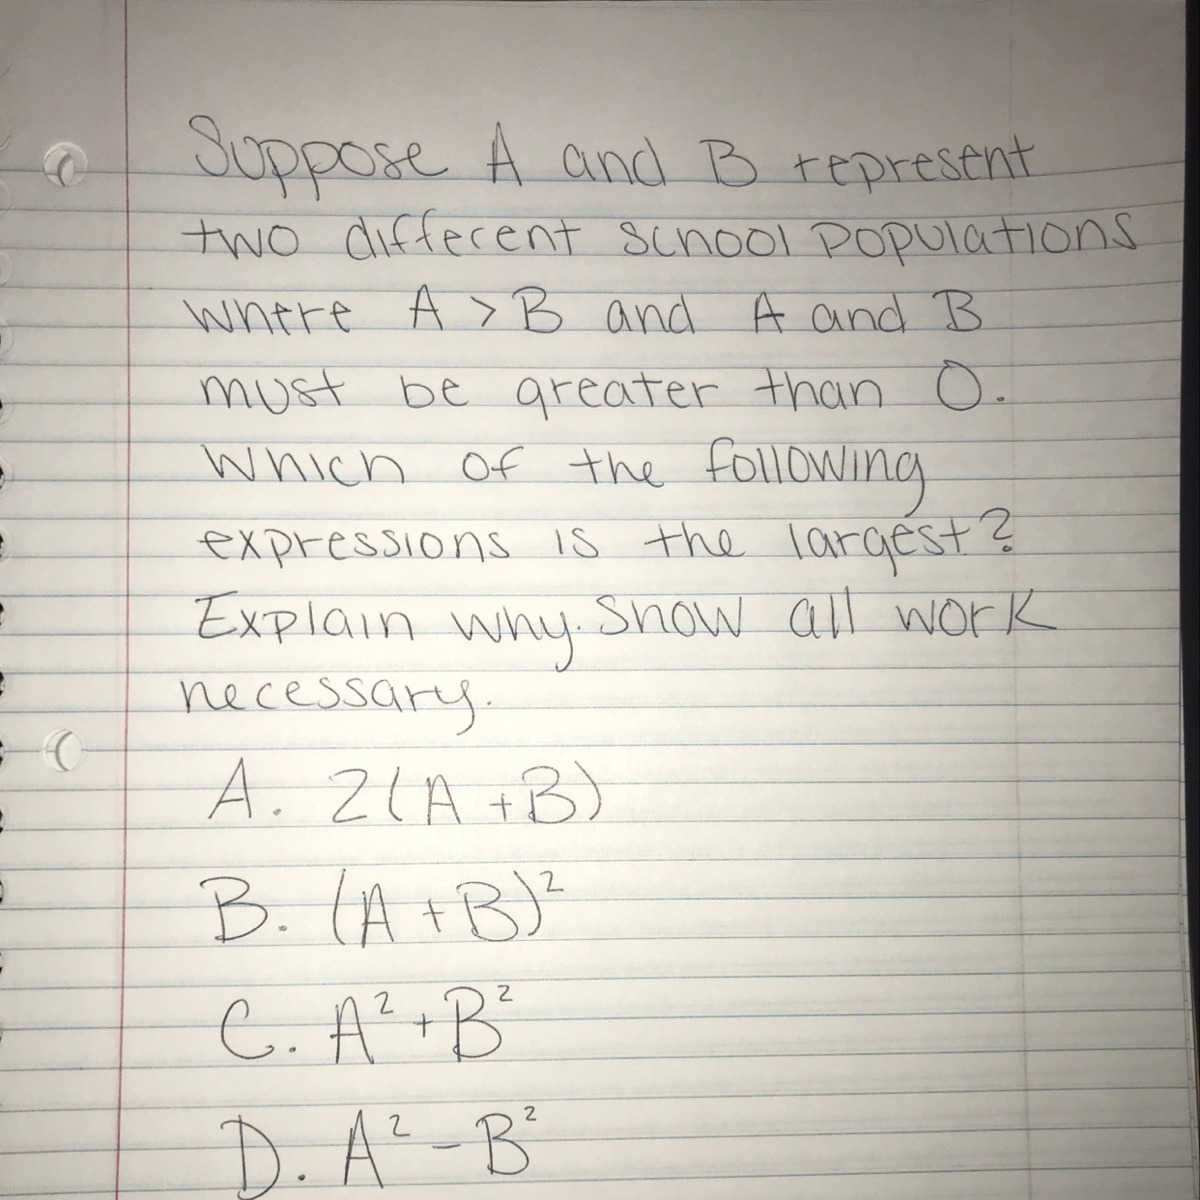 Suppose A and B represent
two different school populations
where A > B and A and B
must be greater than 0.
Which of the following
expressions is the largest?
Explain why. Show all work
necessary.
A. 2(A + B)
B. (A + B)²
C. A² + B²
D. A² - B²